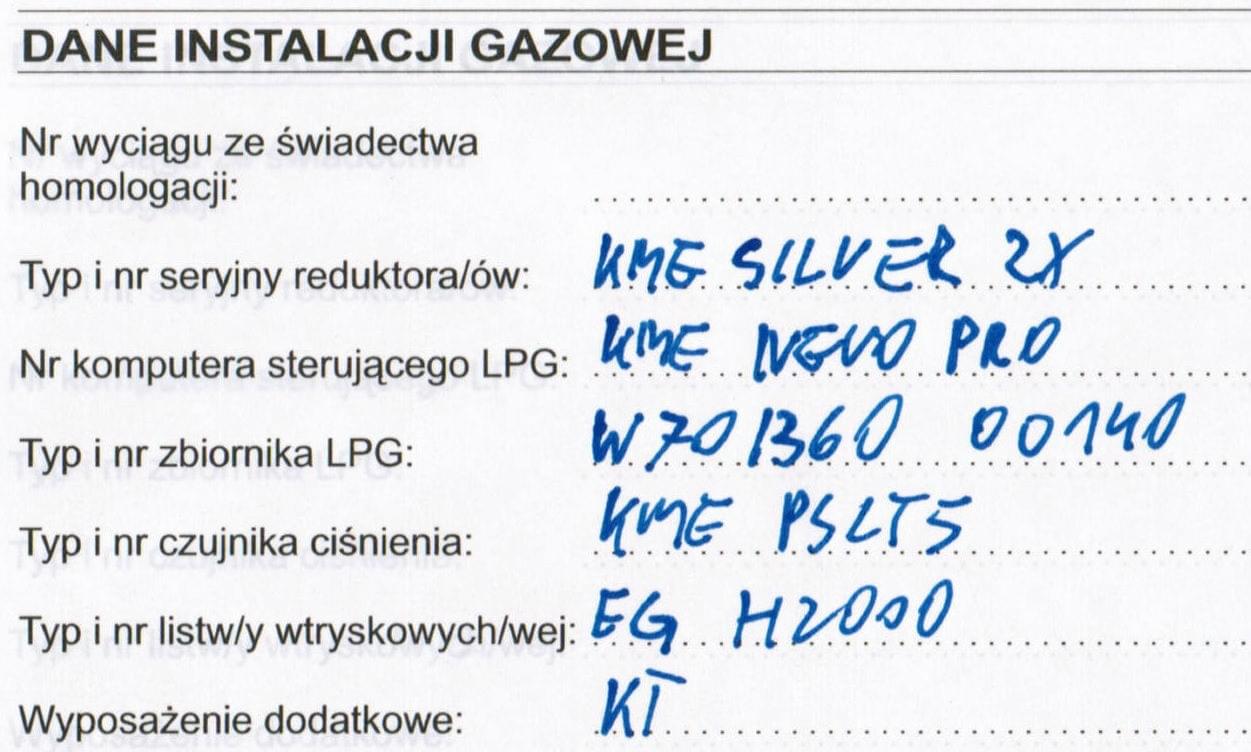 DANE INSTALACJI GAZOWEJ
Nr wyciągu ze świadectwa
homologacji:
Typ i nr seryjny reduktora/ów: KME SILVER 2X
Nr komputera sterującego LPG: KME NEVO PRO
Typ i nr zbiornika LPG: W701360 00140
Typ i nr czujnika ciśnienia: KME PSLT5
Typ i nr listw/y wtryskowych/wej: EG H2000
Wyposażenie dodatkowe: KT